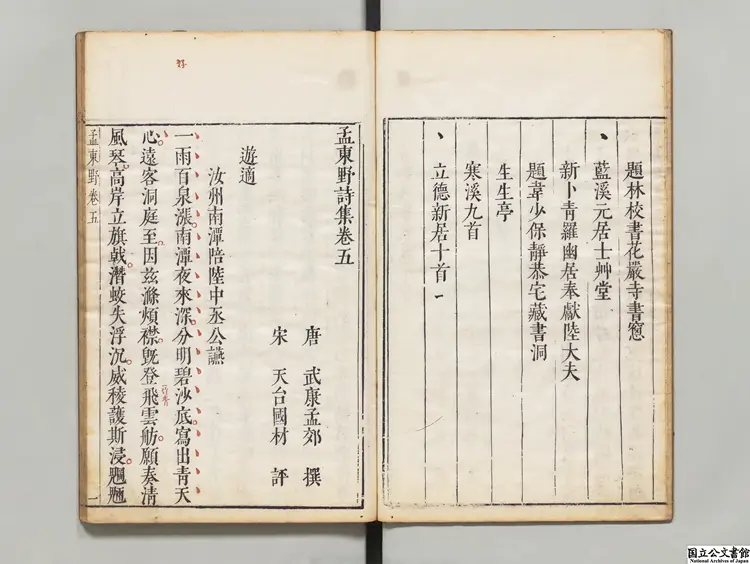 題林校書花嚴寺書窓
藍溪元居士艸堂
新卜青羅幽居奉獻陸大夫
題韋少保靜恭宅藏書洞
生生亭
寒溪九首
立德新居十首
孟東野詩集卷五
唐 武康孟郊 撰
宋 天台國材 評
遊適
汝州南潭陪陸中丞公讌
一雨百泉漲南潭夜來深分明碧沙底寫出青天
心遠客洞庭至因茲滌煩襟旣登飛雲舫願奏清
風琴高岸立旗戟潛蛟失浮沉威稜護斯浸魍魎
孟東野卷五
一
国立公文書館
National Archives of Japan